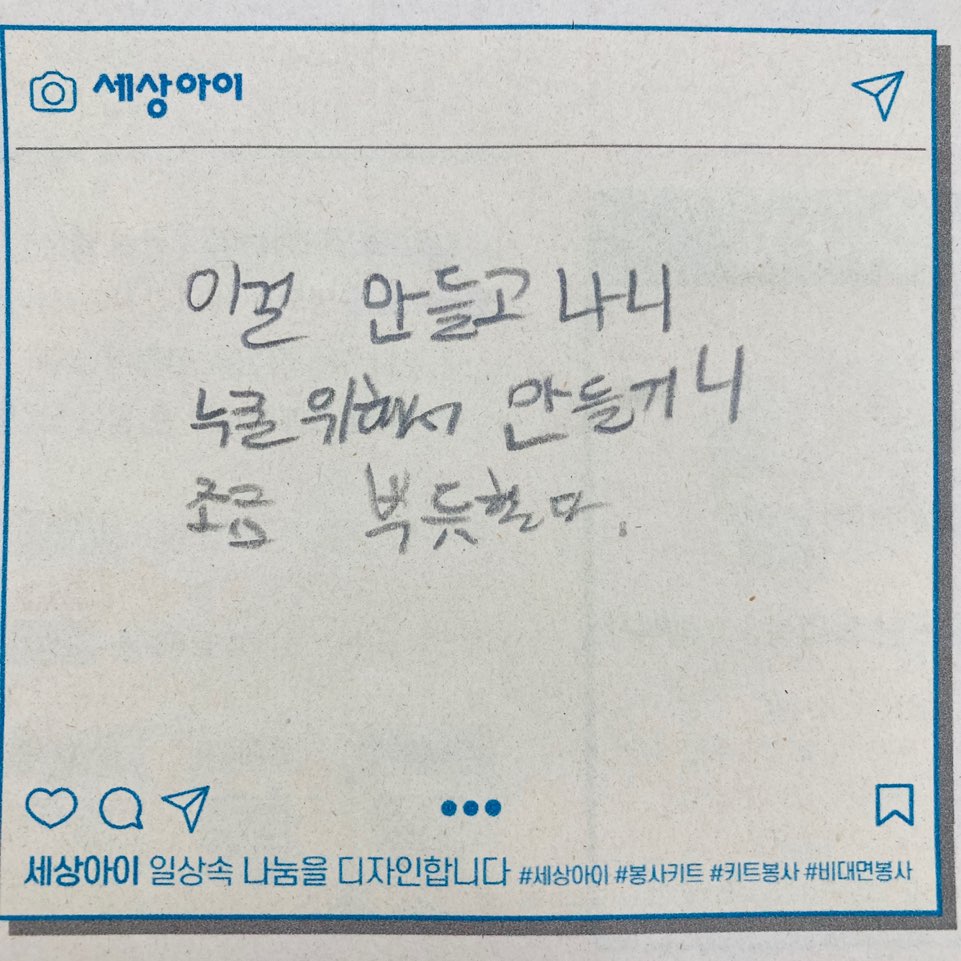 세상아이
이걸 만들고 나니
누굴 위해서 만들거니
조금 뿌듯할다.
세상아이 일상속 나눔을 디자인합니다 #세상아이 #봉사키트 #키트봉사 #비대면봉사